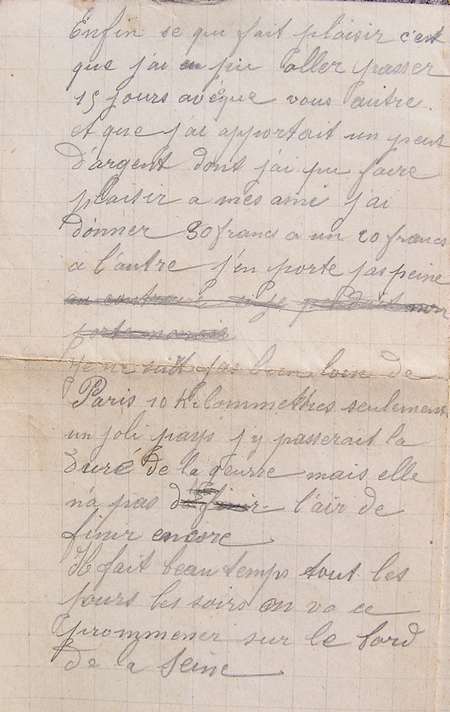 Enfin se qui fait plaisir c'est
que j'ai pu aller passer
15 jours avéque vous autre.
et que j'ai apportait un peut
d'argent dont j'ai pu faire
plaisir a mes ami j'ai
donner 30 francs a un 20 francs
a l'autre j'en porte pas peine
au contraire
porte monaie
Je ne suis pas bien loin de
Paris 10 Kilommettres seulement
un joli pays j'y passerait la
duré de la geurre mais elle
n'a pas de finir l'air de
finir encore
Il fait beau temps tout les
jours les soirs on va ce
prommener sur le bord
de la Seine